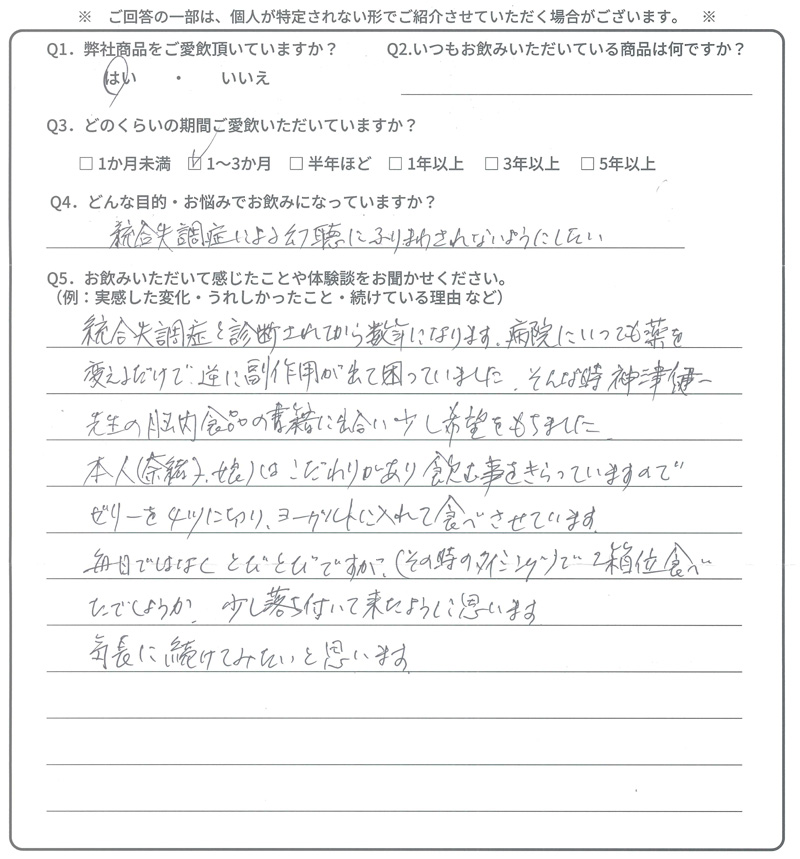 ※ ご回答の一部は、個人が特定されない形でご紹介させていただく場合がございます。 ※
Q1．弊社商品をご愛飲頂いていますか？ Q2.いつもお飲みいただいている商品は何ですか？
はい ・ いいえ
Q3．どのくらいの期間ご愛飲いただいていますか？
□ 1か月未満 ☑ 1～3か月 □ 半年ほど □ 1年以上 □ 3年以上 □ 5年以上
Q4．どんな目的・お悩みでお飲みになっていますか？
統合失調症による幻聴にふりまわされないようにしたい
Q5．お飲みいただいて感じたことや体験談をお聞かせください。
（例：実感した変化・うれしかったこと・続けている理由 など）
統合失調症と診断されてから数年になります。病院にいっても薬を
変えるだけで逆に副作用が出て困っていました。そんな時 神津健一
先生の脳内食品の書籍に出合い少し希望をもちました。
本人(奈緒子、娘)はこだわりがあり飲む事をきらっていますので
ゼリーを4ツに切り、ヨーグルトに入れて食べさせています。
毎日ではなくとびとびですが、(その時のタイミング)で2箱位食べ
たでしょうか。少し落ち付いて来たように思います
気長に続けてみたいと思います。